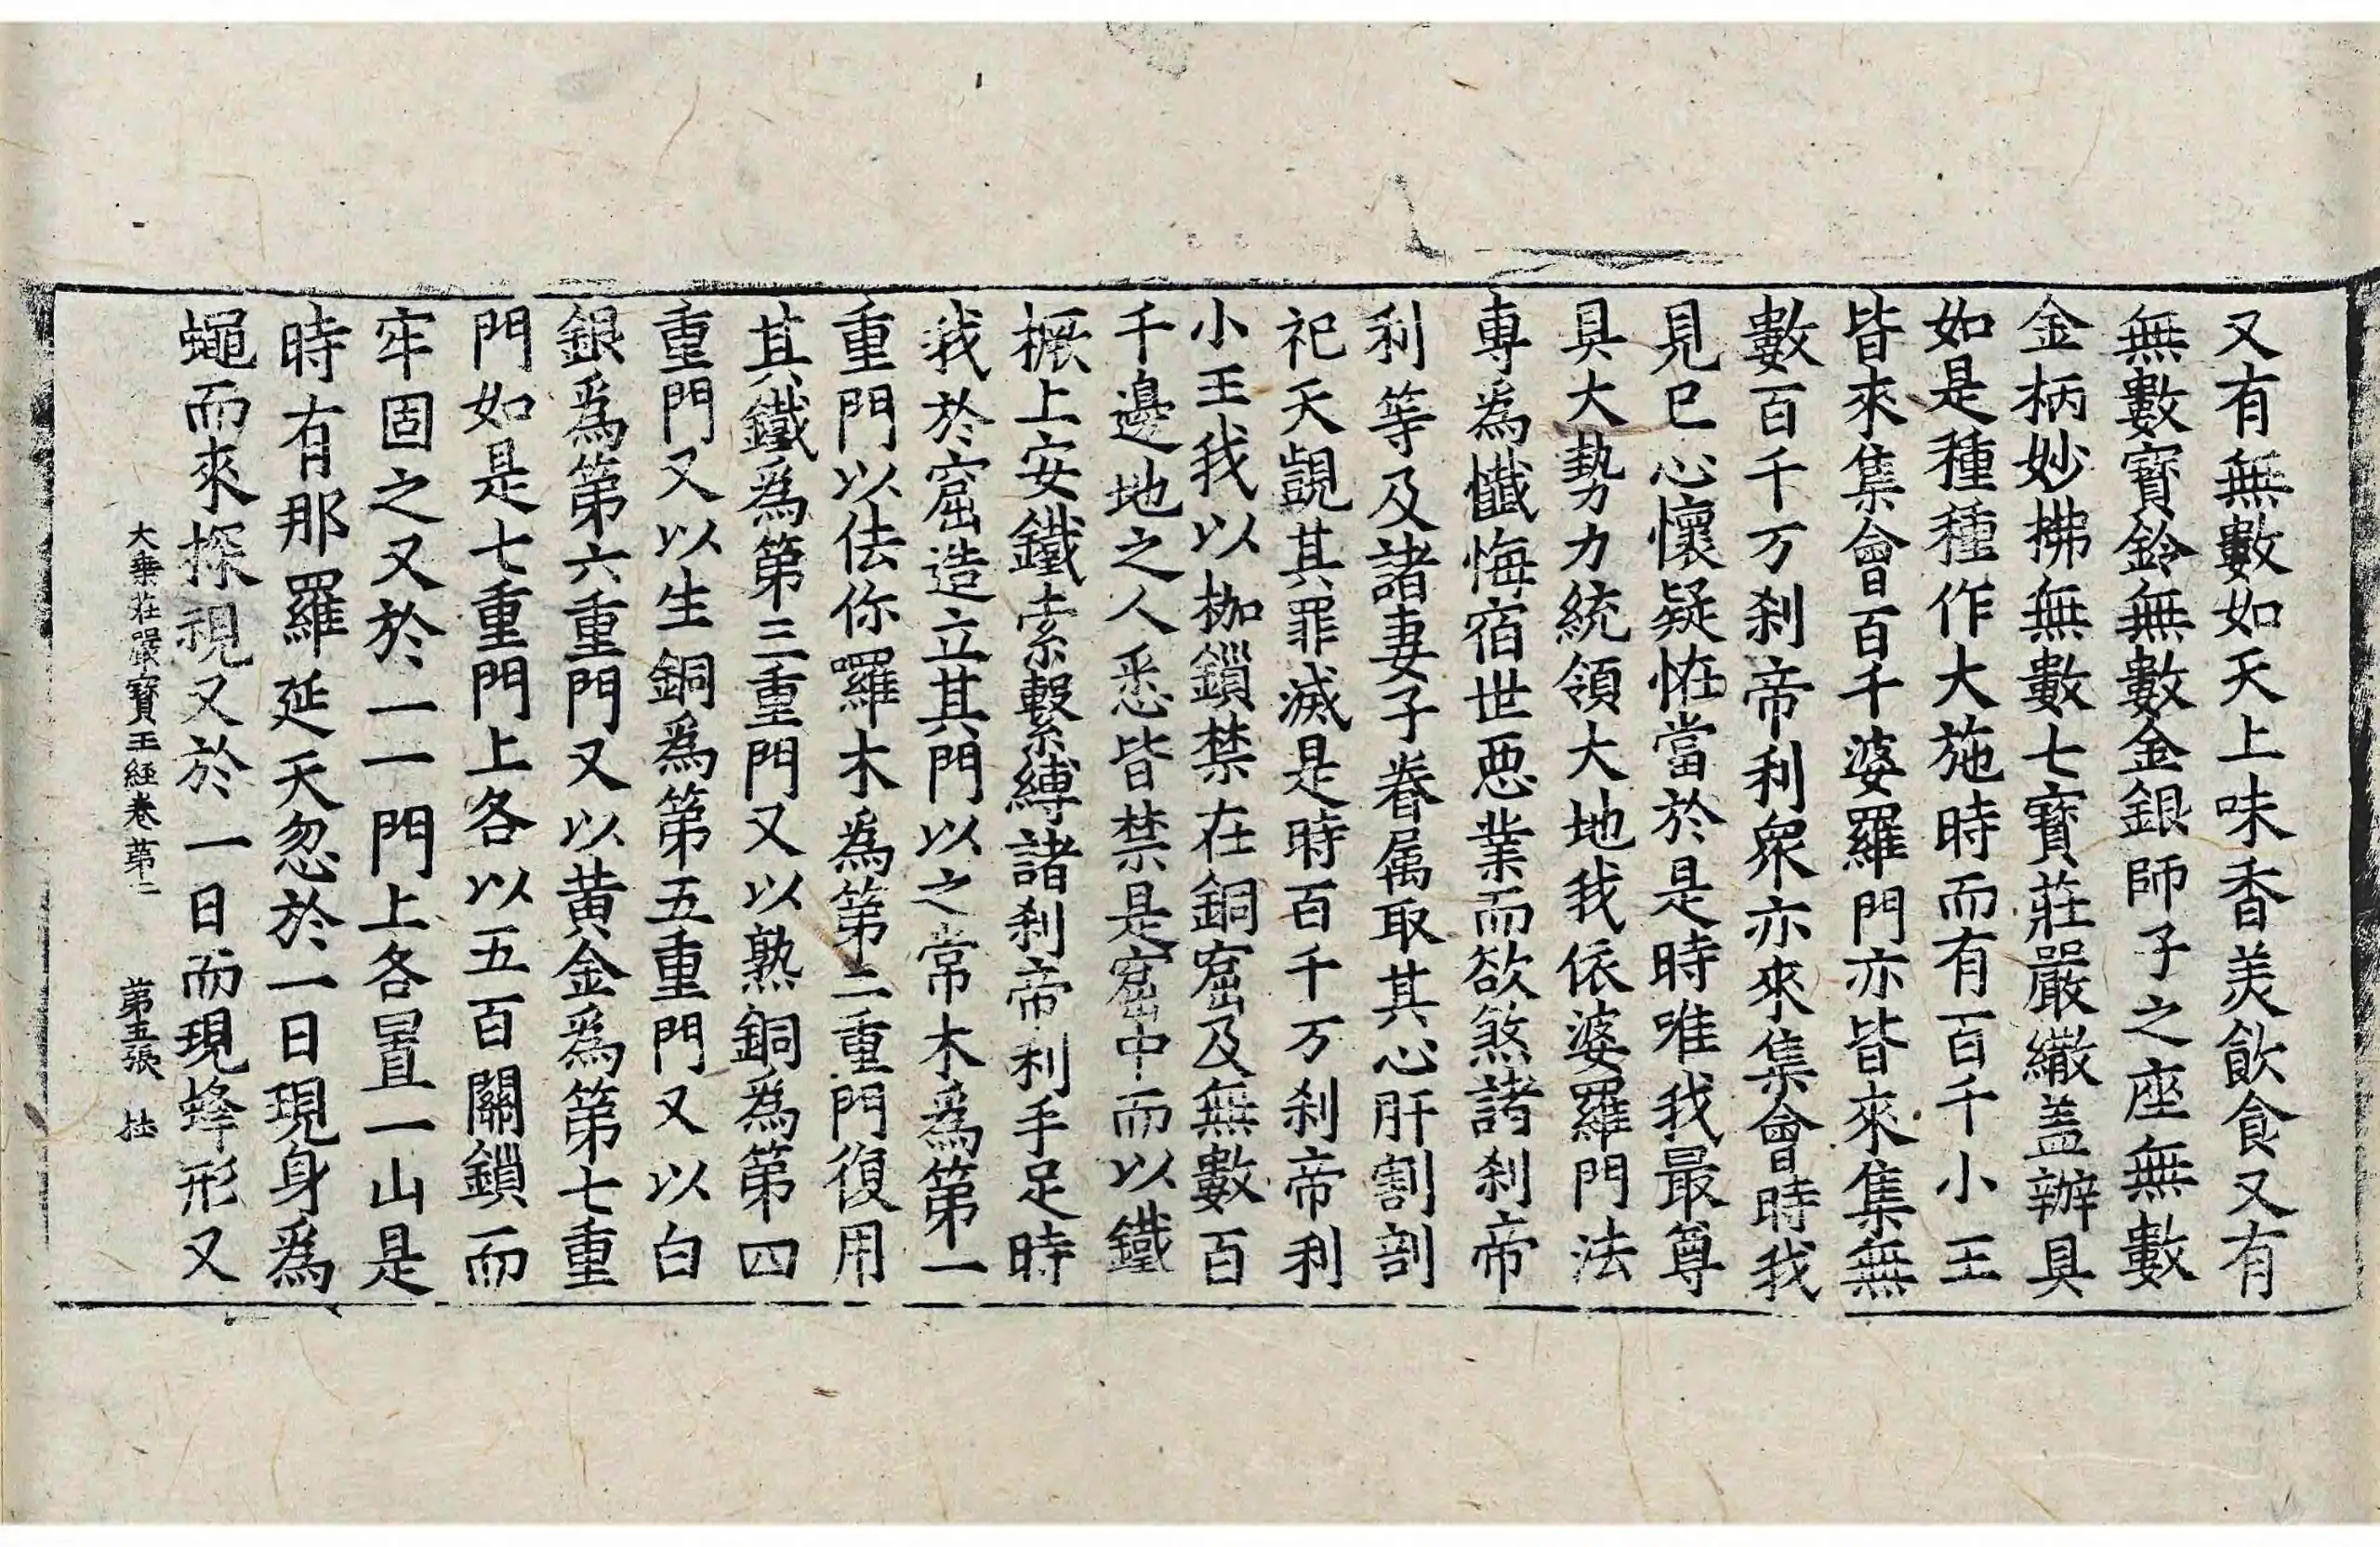 又有無數如天上味香美飲食又有
無數寶鈴無數金銀師子之座無數
金柄妙拂無數七寶莊嚴繖盖辦具
如是種種作大施時而有百千小王
皆來集會百千婆羅門亦皆來集無
數百千万刹帝利衆亦來集會時我
見已心懷疑恠當於是時唯我最尊
具大勢力統領大地我依婆羅門法
專為懺悔宿世惡業而欲煞諸刹帝
利等及諸妻子眷属取其心肝割剖
祀天覬其罪滅是時百千万刹帝利
小王我以枷鎖禁在銅窟及無數百
千邊地之人悉皆禁是窟中而以鐵
橛上安鐵索繫縛諸刹帝利手足時
我於窟造立其門以之常木為第一
重門以佉你囉木為第二重門復用
其鐵為第三重門又以熟銅為第四
重門又以生銅為第五重門又以白
銀為第六重門又以黄金為第七重
門如是七重門上各以五百關鎖而
牢固之又於一一門上各置一山是
時有那羅延天忽於一日現身為
蠅而來探視又於一日而現蜂形又
大乗莊嚴寶王経卷第二 第五張